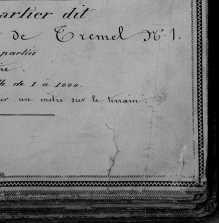 artier dit
de Tremel N° 1.
parties
le de 1 à 1000.
ur un mètre sur le terrain.